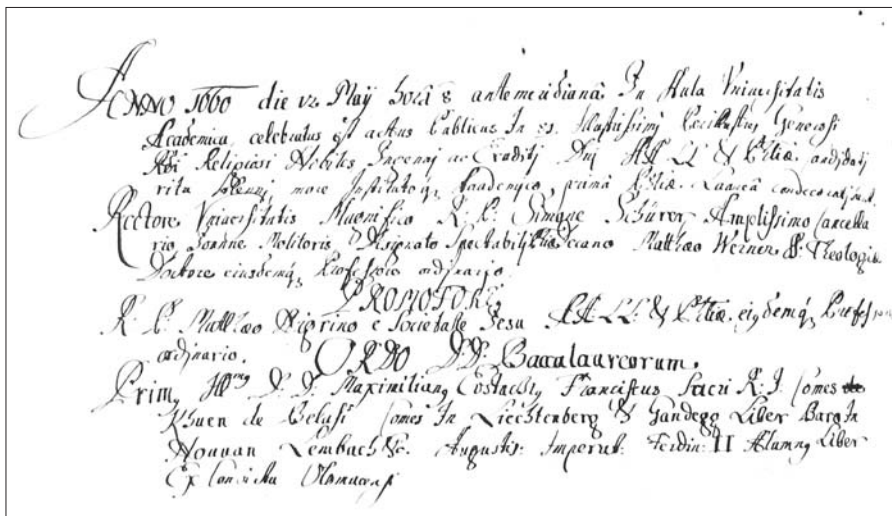 ANNO 1660 die 12. Maij Horâ 8 antemeridianâ In Aula Universitatis
Academica, celebratus est actus Publicus In Illustrissimj Generosi
Religiosi Nobiles Ingenuj ac Eruditj Dnj AA LL & Phliæ.
ritu solennj more Institutoq; Academico, primâ Phliæ. Laureâ
Rectore Universitatis Magnifico R: P: Simone Schürer Amplissimo Cancella
rio Joanne Molitoris Designato Spectabilj Decano Matthæo Werner SS. Theologiæ
Doctore eiusdemq; Professore ordinario.
PROMOTORE
R: P: Matthæo Nigrino e Societate Jesu AA: LL: & Phliæ. eiusdemq; Professore
ordinario.
ORDO DD: Baccalaureorum.
Prim, Illmus D: D: Maximilian, Eustachi, Franciscus Sacri R: I: Comes
Khuen de Belasi Comes In Liechtenberg & Gandegg Liber Baro In
Lembach &c. Augustis: Imperat: Ferdin: II Alumn, Liber
Ex Convictu